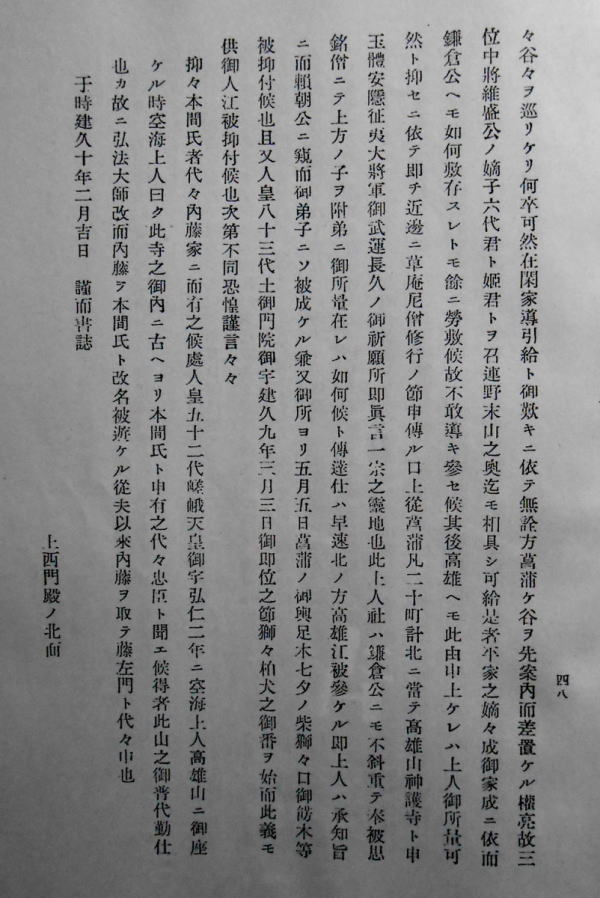 々谷々ヲ巡リケリ何卒可然在閑家導引給ト御歎キニ依テ無詮方菖蒲ケ谷ヲ先案內而差置ケル權亮故三
位中將維盛公ノ嫡子六代君ト姬君トヲ召連野末山之奧迄モ相具シ可給是者平家之嫡々成御家成ニ依而
鎌倉公ヘモ如何敷存スレトモ餘ニ勞敷候故不敢導キ參セ候其後高雄ヘモ此由申上ケレハ上人御所量可
然ト抑セニ依テ卽チ近邊ニ草庵尼僧修行ノ節申傳ル口上從菖蒲凡二十町計北ニ當テ高雄山神護寺ト申
玉體安隱征夷大將軍御武運長久ノ御祈願所卽眞言一宗之靈地也此上人社ハ鎌倉公ニモ不斜重テ奉被思
銘僧ニテ上方ノ子ヲ附弟ニ御所量在レハ如何候ト傳達仕ハ早速北ノ方高雄江被參ケル卽上人ハ承知旨
ニ而賴朝公ニ窺而御弟子ニソ被成ケル乘又御所ヨリ五月五日菖蒲ノ御輿足木七夕ノ柴獅々口御餝木等
被抑付候也且又人皇八十三代土御門院御宇建久九年三月三日御卽位之節獅々柏犬之御番ヲ始而此義モ
供御人江被抑付候也次第不同恐惶謹言々々
抑々本間氏者代々內藤家ニ而有之候處人皇五十二代嵯峨天皇御宇弘仁二年ニ空海上人高雄山ニ御座
ケル時空海上人曰ク此寺之御內ニ古ヘヨリ本間氏ト申有之代々忠臣ト聞エ候得者此山之御普代勤仕
也カ故ニ弘法大師改而內藤ヲ本間氏ト改名被遊ケル從夫以來內藤ヲ取テ藤左門ト代々申也
于時建久十年二月吉日　謹而書誌
上西門殿ノ北面
四八